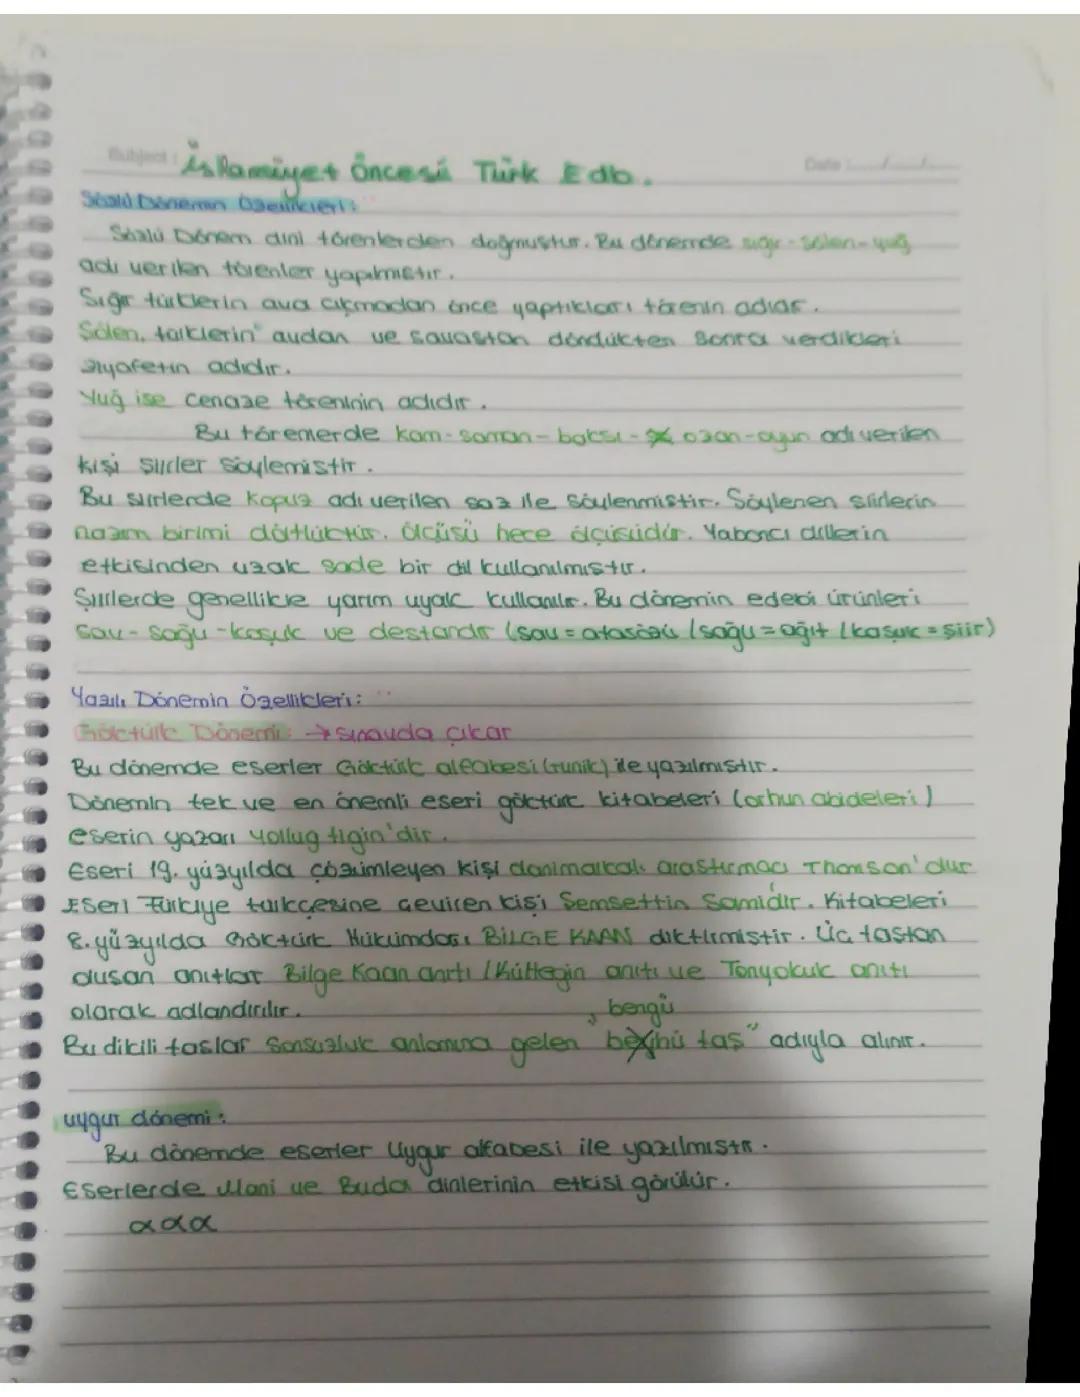 Subject: Date:
İslamiyet Öncesi Türk Edb.
Sözlü Dönemin Özellikleri:
Sözlü Dönem dini törenlerden doğmuştur. Bu dönemde sığır-şölen-yuğ
adı verilen törenler yapılmıştır.
Sığır türklerin ava çıkmadan önce yaptıkları törenin adıdır.
Şölen, türklerin avdan ve savaştan döndükten sonra verdikleri
ziyafetin adıdır.
Yuğ ise cenaze töreninin adıdır.
Bu törenlerde kam-şaman-baksı- ozan-oyun adı verilen
kişi şiirler söylemiştir.
Bu şiirlerde Kopuz adı verilen saz ile söylenmiştir. Söylenen şiirlerin
nazım birimi dörtlüktür. Ölçüsü hece ölçüsüdür. Yabancı dillerin
etkisinden uzak sade bir dil kullanılmıştır.
Şiirlerde genellikle yarım uyak kullanılır. Bu dönemin edebi ürünleri
Sav-Sagu-koşuk ve destandır (sav=atasözü / sağu=ağıt / koşuk=şiir)
Yazılı Dönemin Özellikleri:
Göktürk Dönemi: → sınavda çıkar
Bu dönemde eserler Göktürk alfabesi (runik) ile yazılmıştır.
Dönemin tek ve en önemli eseri göktürk kitabeleri (orhun abideleri)
eserin yazarı yollug tigin'dir.
Eseri 19. yüzyılda çözümleyen kişi danimarkalı araştırmacı Thomson'dur
Eseri Türkiye türkçesine çeviren kişi Şemsettin Samidir. Kitabeleri
8. yüzyılda Göktürk Hükümdarı BİLGE KAAN diktirmiştir. Üç taştan
oluşan anıtlar Bilge Kaan anıtı / Kültegin anıtı ve Tonyokuk anıtı
olarak adlandırılır.
bengü
Bu dikili taşlar Sonsuzluk anlamına gelen taş" adıyla alınır.
uygur dönemi:
Bu dönemde eserler Uygur alfabesi ile yazılmıştır.
Eserlerde Mani ve Buda dinlerinin etkisi görülür.